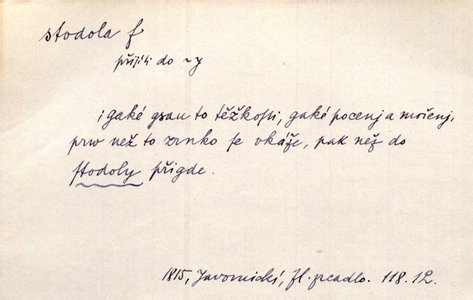 stodola f
přijíti do ~y
i gaké gsau to těžkosti, gaké pocenj a močenj,
prw než to zrnko se ukáže, pak než do
stodoly přigde.
1815, Javornický, fl. zrcadlo. 118.12.